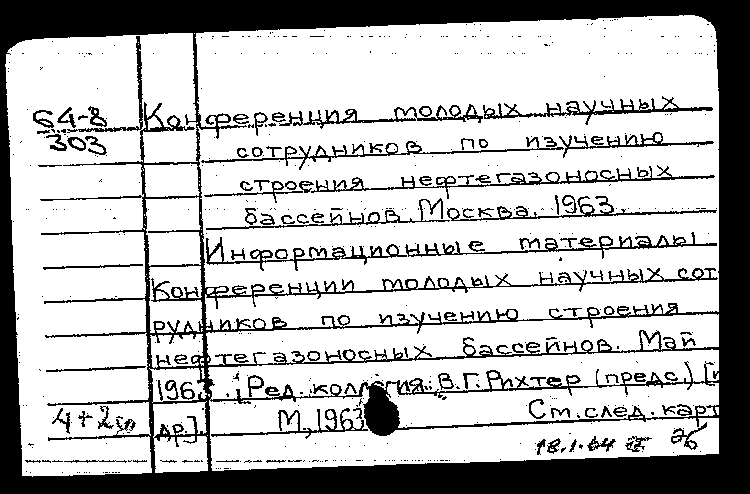 64-8
303
Конференция молодых научных
сотрудников по изучению
строения нефтегазоносных
бассейнов. Москва. 1963.
Информационные материалы
Конференции молодых научных сот
рудников по изучению строения
нефтегазоносных бассейнов. Май
1963. [Ред. коллегия: В.Г. Рихтер (предс.) [и
др.]. М., 1963
См. след. карт
4+2
18.1.64